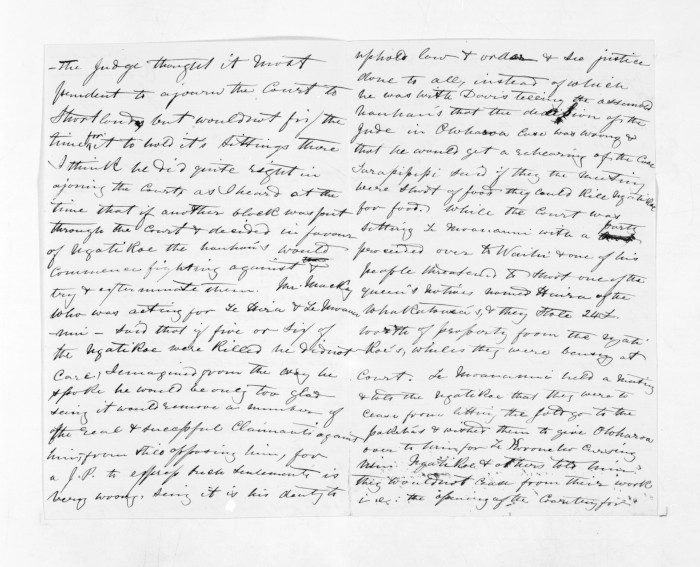 - The Judge thought it most
prudent to ajourn the Court to
Shortland, but would not fix / the
time for to hold it's Sittings there
I think he did quite right in
ajorning the Courts as I heard at the
time that if another block was put
through the Court & decided in favour
of Ngatikoe the hauhau's would
commence fighting against &
try & exterminate them. Mr Mackay
who was acting for Te Hira & Te Moan
-nui - said that if five or Six of
the Ngatikoe were Killed he did not
Care, I imagined from the way he
spoke he would be only too glad
Seing it would remove a number of
the real & sucessful Claimants against
him, from still opposing him, for
a J.P. to express such sentiments is
very wrong. Seing it is his duty to
uphold law & order & See justice
done to all, instead of which
he was with Davis telling the assembled
hauhau's that the decision of the
Jude in Owharoa Case was wrong &
that he would get a rehearing of the Case
Tarapipipi Said if they the meeting
were Short of food they could Kill Ngatikoe
for food. While the Court was
Sitting Te Moananui with a party
proceeded over to Waihi & one of his
people threatened to Shoot one of the
Queen's Natives named of the
Whakatohea's, & they Stole 24£
worth of property from the Ngati
Koe's, whiles they were bausy at
Court. Te Moananui held a meeting
& told the Ngatikoe that they were to
cease from letting the go to the
pakehas & wished them to give Owharoa
over to him for Te Cursing
him. Ngatikoe & others told him
they would not Cease from their work
i.e: the opening of the Country for